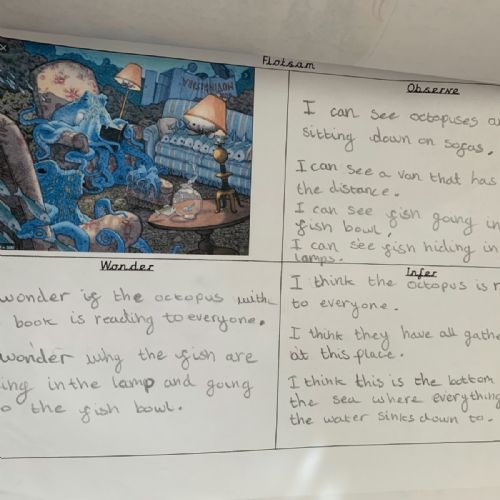 Flotsam
Observe
I can see octopuses
sitting down on sofas.
I can see a van that has
the distance.
I can see fish going in
fish bowl.
I can see fish hiding in
lamps.
Wonder
wonder if the octopus with
book is reading to everyone.
wonder why the fish are
in the lamp and going
the fish bowl.
Infer
I think the octopus is
to everyone.
I think they have all
at this place.
I think this is the bottom
the sea where everything
the water sinks down to.